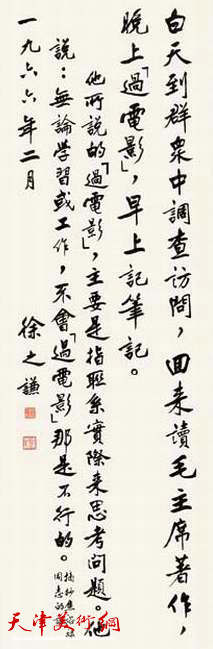 白天到群衆中調查訪問，回来讀毛主席著作，
晚上「過電影」，早上記筆記。
他所説的「過電影」，主要是指聯系實際来思考問題。他
説：無論学習或工作，不會「過電影」那是不行的。
摘抄焦裕禄
同志的話
一九六六年二月
徐之謙
天津美術網